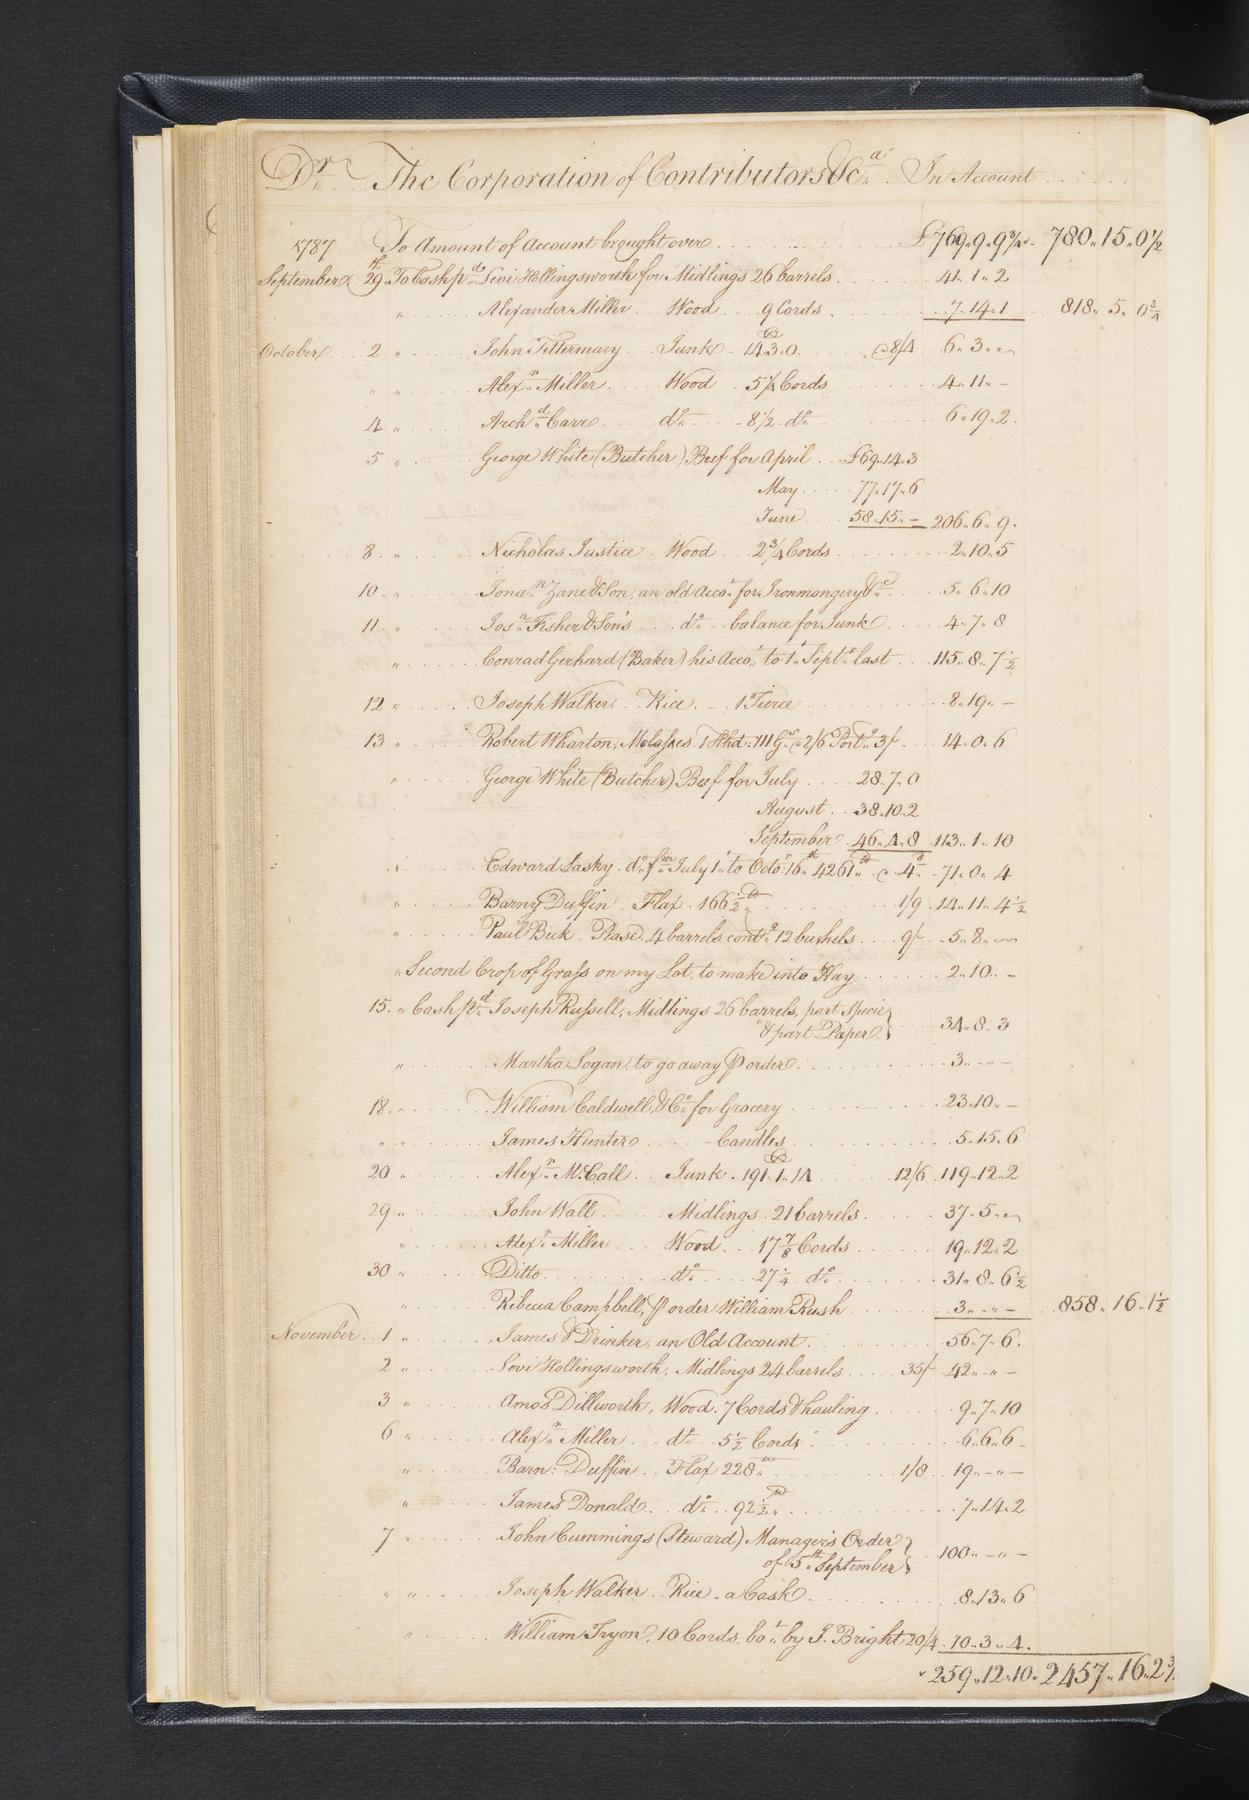 Dr. The Corporation of Contributors &ca. In Account
1787 To Amount of Account brought over £769"9"9¾ 780"15"0½
September 29th To Cash pd Levi Hollingsworth for Midlings 26 barrels 41"1"2
" Alexander Miller Wood 9 Cords 7"14"1 818"5"0¾
October 2 " John Tittermary Junk 14"3"0 @ 8/4 6"3"~
" " Alexr Miller Wood 5¼ Cords 4"11"-
4 " Archd Carr do 8½ do 6"19"2
5 " George White (Butcher) Beef for April £69"14"3
May 77"17"6
June 58"15"- 206"6"9
8 " Nicholas Justice Wood 2¾ Cords 2"10"5
10 " Jonan Zane & Son, an old Accot for Ironmongery &c 5"6"10
11 " Josa Fisher & Son's do balance for Junk 4"7"8
" Conrad Gerhard (Baker) his Accot to 1st Septr last 115"8"7½
12 " Joseph Walker Rice 1 Tierce 8"19"-
13 " Robert Wharton, Molasses 1 Hhd: 111 Gns @ 2/6 Porte 3/ 14"0"6
" George White (Butcher) Beef for July 28"7"0
August 38"10"2
September 46"4"8 113"1"10
" Edward Lasky do fm July 1st to Octor 16th 4261 lb @ 4d 71"0"4
" Barny Duffin Flax 166½ lb 1/9 14"11"4½
" Paul Beck Pease 4 barrels contg 12 bushels 9/ 5"8"~
" Second Crop of Grass on my Lot, to make into Hay 2"10"-
15 " Cash pd Joseph Russell, Midlings 26 barrels, part specie
& part Paper 34"8"3
" Martha Logan, to go away ⅌ order 3"-"-
18 " William Caldwell, & Co for Grocery 23"10"-
" " James Hunter Candles 5"15"6
20 " Alexr McCall Junk 191"1"14 12/6 119"12"2
29 " John Wall Midlings 21 barrels 37"5"~
" Alexr Miller Wood 17⅞ Cords 19"12"2
30 " Ditto do 27¼ do 31"8"6½
" Rebecca Campbell, ⅌ order William Rush 3"-"- 858"16"1½
November 1 " James & Drinker, an Old Account 56"7"6
2 " Levi Hollingsworth, Midlings 24 barrels 35/ 42"-"-
3 " Amos Dillworth, Wood 7 Cords & hauling 9"7"10
6 " Alexr Miller do 5½ Cords 6"6"6
" Barn: Duffin Flax 228 lb 1/8 19"-"-
" James Donald do 92½ lb 7"14"2
7 " John Cummings (Steward) Manager's Order
of 5th September 100"-"-
" " Joseph Walker Rice a Cask 8"13"6
" William Tryon, 10 Cords bot by J. Bright 20/4 10"3"4
259"12"10 2457"16"2¾